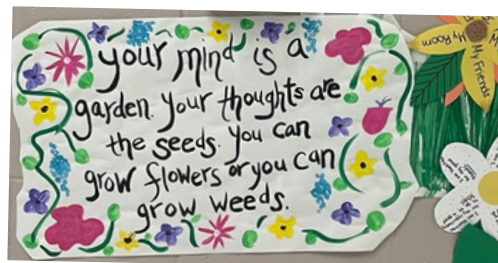 your mind is a
garden. your thoughts are
the seeds. you can
grow flowers or you can
grow weeds.
My Room
My Friends